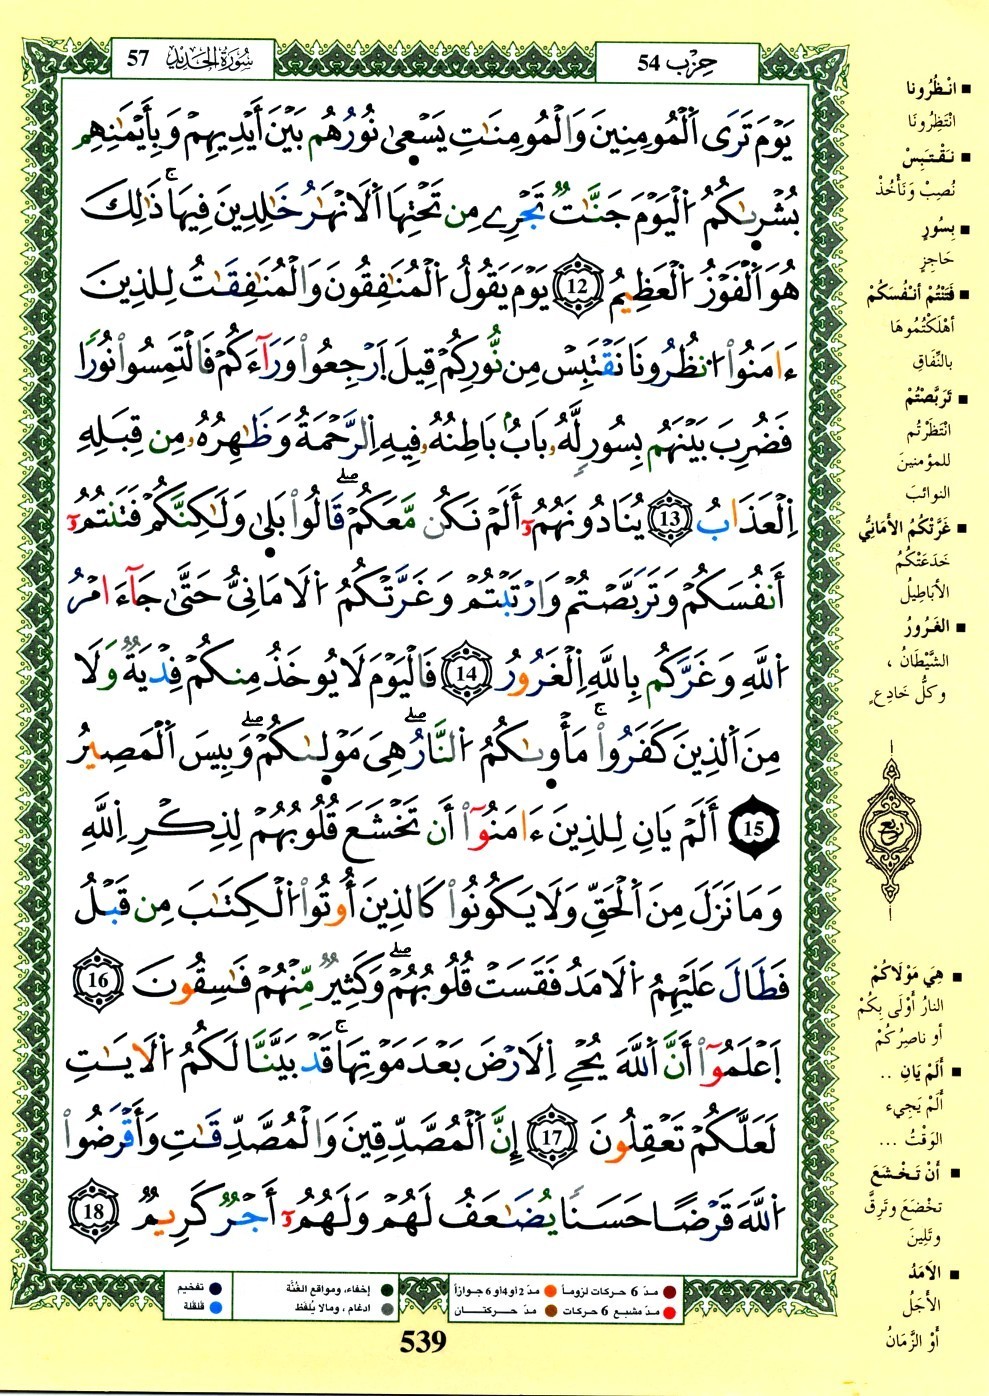 سُورَةُ الحَدِيد 57
حِزْب 54
يَوْمَ تَرَى اَلْمُومِنِينَ وَالْمُومِنَٰتِ يَسْع۪ىٰ نُورُهُم بَيْنَ أَيْدِيهِمْ وَبِأَيْمَٰنِهِم
بُشْر۪ىٰكُمُ اُلْيَوْمَ جَنَّٰتٌ تَجْرِے مِن تَحْتِهَا اَلَانْهَٰرُ خَٰلِدِينَ فِيهَاۚ ذَٰلِكَ
هُوَ اَلْفَوْزُ اُلْعَظِيمُ 12 يَوْمَ يَقُولُ اُلْمُنَٰفِقُونَ وَالْمُنَٰفِقَٰتُ لِلذِينَ
ءَامَنُواْ اُنظُرُونَا نَقْتَبِسْ مِن نُّورِكُمْ قِيلَ اَرْجِعُواْ وَرَآءَكُمْ فَالْتَمِسُواْ نُورًا
فَضُرِبَ بَيْنَهُم بِسُورٍ لَّهُۥ بَابٌۢ بَاطِنُهُۥ فِيهِ اِلرَّحْمَةُ وَظَٰهِرُهُۥ مِن قِبَلِهِ
اِلْعَذَابُ 13 يُنَادُونَهُمُۥٓ أَلَمْ نَكُن مَّعَكُمْۖ قَالُواْ بَل۪ىٰ وَلَٰكِنَّكُمْ فَتَنتُمُۥٓ
أَنفُسَكُمْ وَتَرَبَّصْتُمْ وَارْتَبْتُمْ وَغَرَّتْكُمُ اُلَامَانِىُّ حَتَّىٰ جَآءَ امْرُ
اُللَّهِ وَغَرَّكُم بِاللَّهِ اِلْغَرُورُ 14 فَالْيَوْمَ لَا يُوخَذُ مِنكُمْ فِدْيَةٌ وَلَا
مِنَ اَلذِينَ كَفَرُواْۚ مَأْو۪ىٰكُمُ اُلنَّارُۖ هِىَ مَوْل۪ىٰكُمْۖ وَبِيسَ اَلْمَصِيرُ
15 أَلَمْ يَانِ لِلذِينَ ءَامَنُوٓاْ أَن تَخْشَعَ قُلُوبُهُمْ لِذِكْرِ اِللَّهِ
وَمَا نَزَلَ مِنَ اَلْحَقِّ وَلَا يَكُونُواْ كَالذِينَ أُوتُواْ اُلْكِتَٰبَ مِن قَبْلُ
فَطَالَ عَلَيْهِمُ اُلَامَدُ فَقَسَتْ قُلُوبُهُمْۖ وَكَثِيرٌ مِّنْهُمْ فَٰسِقُونَ 16
اَعْلَمُوٓاْ أَنَّ اَللَّهَ يُحْىِ اِلَارْضَ بَعْدَ مَوْتِهَاۚ قَدْ بَيَّنَّا لَكُمُ اُلَايَٰتِ
لَعَلَّكُمْ تَعْقِلُونَ 17 إِنَّ اَلْمُصَّدِّقِينَ وَالْمُصَّدِّقَٰتِ وَأَقْرَضُواْ
اُللَّهَ قَرْضًا حَسَنًا يُضَٰعَفُ لَهُمْ وَلَهُمُۥٓ أَجْرٌ كَرِيمٌ 18
■ انْظُرُونا
انْتَظِرُونَا
■ نَقْتَبِسْ
نُصِبْ وَنَأْخُذْ
■ بِسُورٍ
حَاجِزٍ
■ فَتَنْتُمْ أَنْفُسَكُمْ
أَهْلَكْتُمُوهَا
بالنِّفَاقِ
■ تَرَبَّصْتُمْ
انْتَظَرْتُم
للمؤمنينَ
النوائبَ
■ غَرَّتْكُمُ الأَمَانِيُّ
خَدَعَتْكُمُ
الأَبَاطِيلُ
■ الغَرُورُ
الشَّيْطَانُ ،
وكلُّ خَادِعٍ
ربع
■ هِيَ مَوْلَاكُمْ
النارُ أَوْلَى بِكُمْ
أو ناصِرُكُمْ
■ أَلَمْ يَانِ ..
أَلَمْ يَجِيء
الوَقْتُ ...
■ أَنْ تَخْشَعَ
تخْضَعَ وتَرِقَّ
وتَلِينَ
■ الأَمَدُ
الأَجَلُ
أو الزَّمَانُ
مدّ 6 حركات لزوماً
مدّ 2 أو 4 أو 6 جوازاً
إخفاء، ومواقع الغُنَّة
تفخيم
مدّ مشبع 6 حركات
مدّ حركتان
ادغام ، ومالا يُلفَظ
قلقلة
539